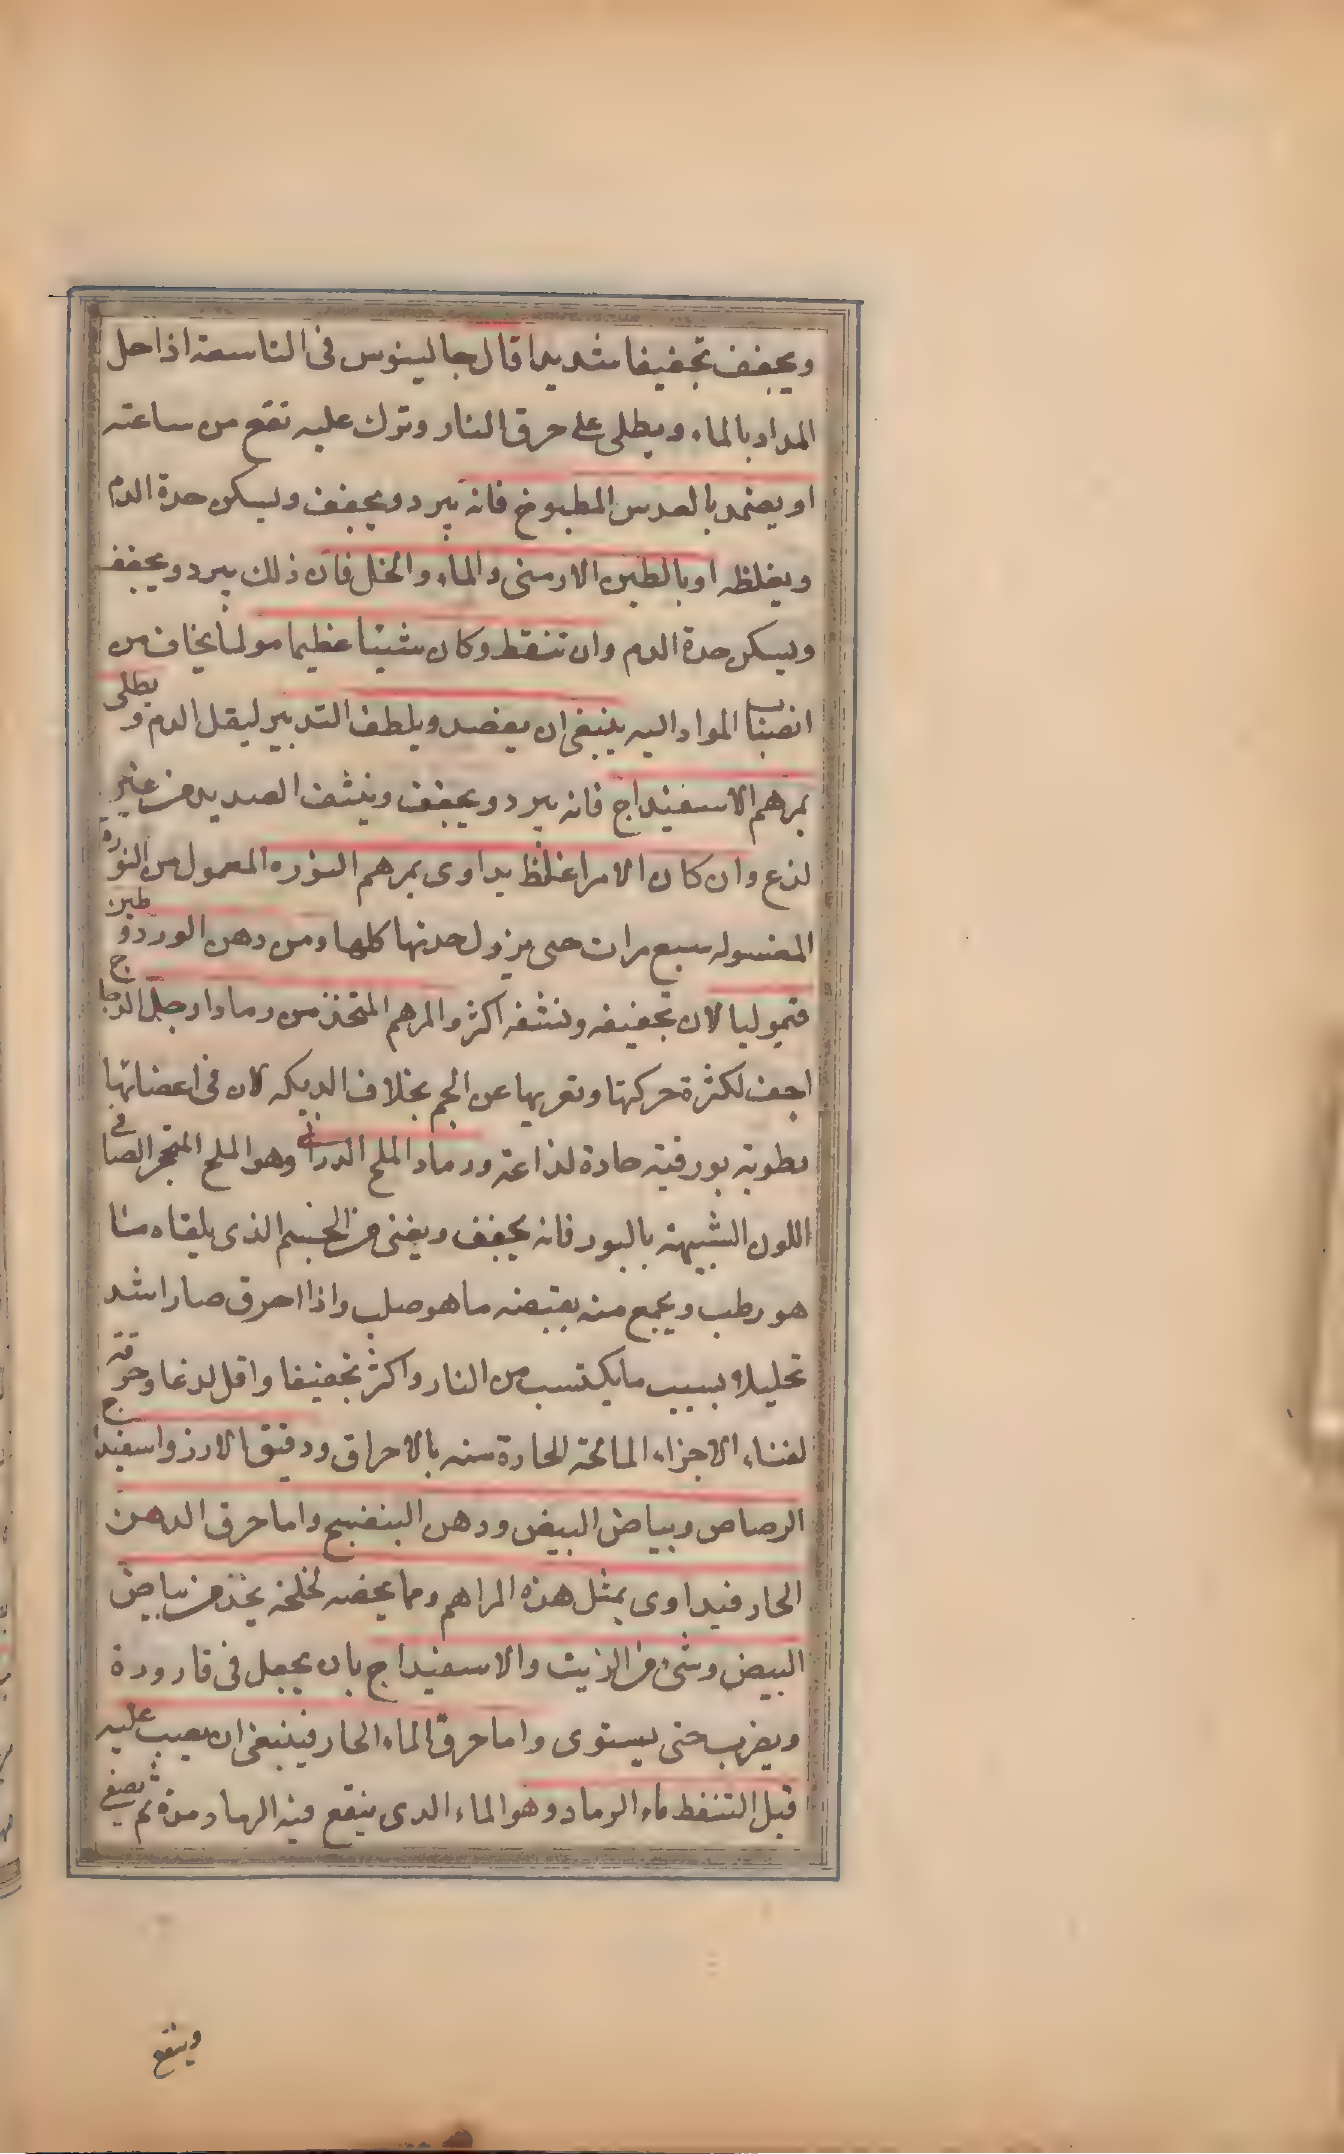 ويجفف تجفيفا شديدا قال جالينوس فى التاسعة اذا حل
المداد بالماء ويطلى على حرق النار وترك عليه نقع من ساعته
او يضمد بالعدس المطبوخ فانه يبرد ويجفف ويسكن حدة الدم
ويغلظه او بالطين الارمنى والماء والخل فان ذلك يبرد ويجفف
ويسكن حدة الدم وان تنقط وكان شيئا عظيما مولما يخاف من
انصباب المواد اليه ينبغى ان يفصد ويلطف التدبير ليقل الدم ويطلى
بمرهم الاسفيداج فانه يبرد ويجفف وينشف الصديد من غير
لذع وان كان الامر اغلظ يداوى بمرهم النوره المعمول من النورة
المغسوله سبع مرات حتى يزول حدتها كلها ومن دهن الورد وطين
قيموليا لان تجفيفه ونشفه اكثر والمرهم المتخذ من رماد ارجل الدجاج
اجف لكثرة حركتها وتعريها عن الحم بخلاف الديكه لان فى اعضائها
رطوبة بورقية حادة لذاعة ورماد الملح الدرانى وهو الملح المتحجر الصافى
اللون الشبيهة بالبور فانه يجفف ويفنى من الجسم الذى يلقاه منا
هو رطب ويجمع منه بقبضه ما هو صلب واذا احرق صار اشد
تحليلا بسبب ما يكتسب من النار واكثر تجفيفا واقل لدغا وحرقة
لفناء الاجزاء المالحة الحارة منه بالاحراق ودقيق الارز واسفيداج
الرصاص وبياض البيض ودهن البنفسج واما حرق الدهن
الحار فيداوى بمثل هذه المراهم ومما يخصه لخلخة يتخذ من بياض
البيض وشىء من الزيت والاسفيداج بان يجعل فى قارورة
ويضرب حتى يستوى واما حرق الماء الحار فينبغى ان يصب عليه
قبل التنفط ماء الرماد وهو الماء الذى ينقع فيه الرماد مدة ثم يصفى
وينقع